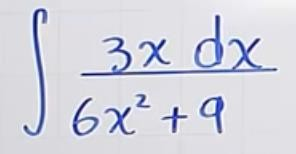 ∫ 3x dx / 6x² + 9